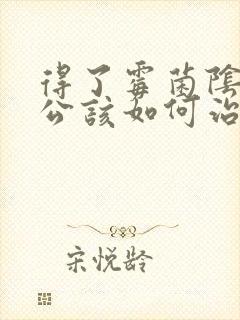 得了霉菌陰
公該如何治
宋悦龄